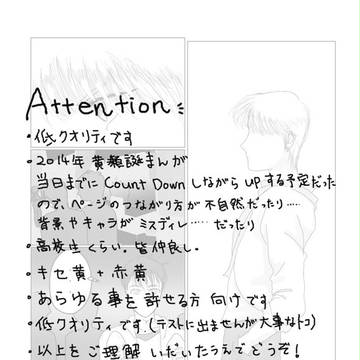 Attention:
・低クオリティです
・2014年 黄瀬誕まんが
当日までに Count Down しながら UP する予定だった
ので、ページのつながり方が不自然だったり……
背景やキャラがミスディレ……だったり
・高校生くらい。皆仲良し。
・キセ黄 + 赤黄
・あらゆる事を許せる方向けです
・低クオリティです。(テストに出ませんが大事なトコ)
・以上をご理解いただいたうえでどうぞ!